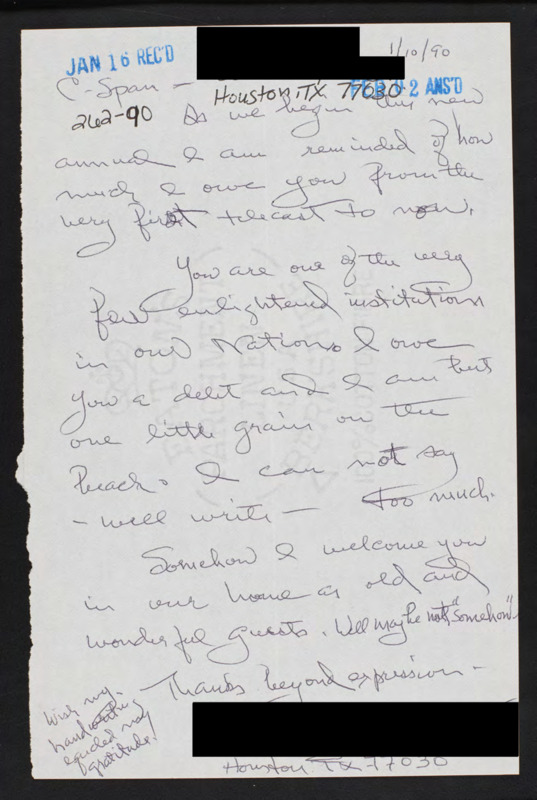 JAN 16 REC'D
1/10/90
C-Span —
Houston, TX 77030
FEB 2 ANS'D
262-90
As we begin this new
annual I am reminded of how
much I owe you from the
very first telecast to now.
You are one of the very
few enlightened institutions
in our Nation. I owe
you a debt and I am but
one little grain on the
beach. I can not say
- well write - too much.
Somehow I welcome you
in our home as old and
wonderful guests. Well maybe not "Somehow"
Thanks beyond expression -
Wish my
handwriting
equaled my
gratitude!
Houston TX 77030